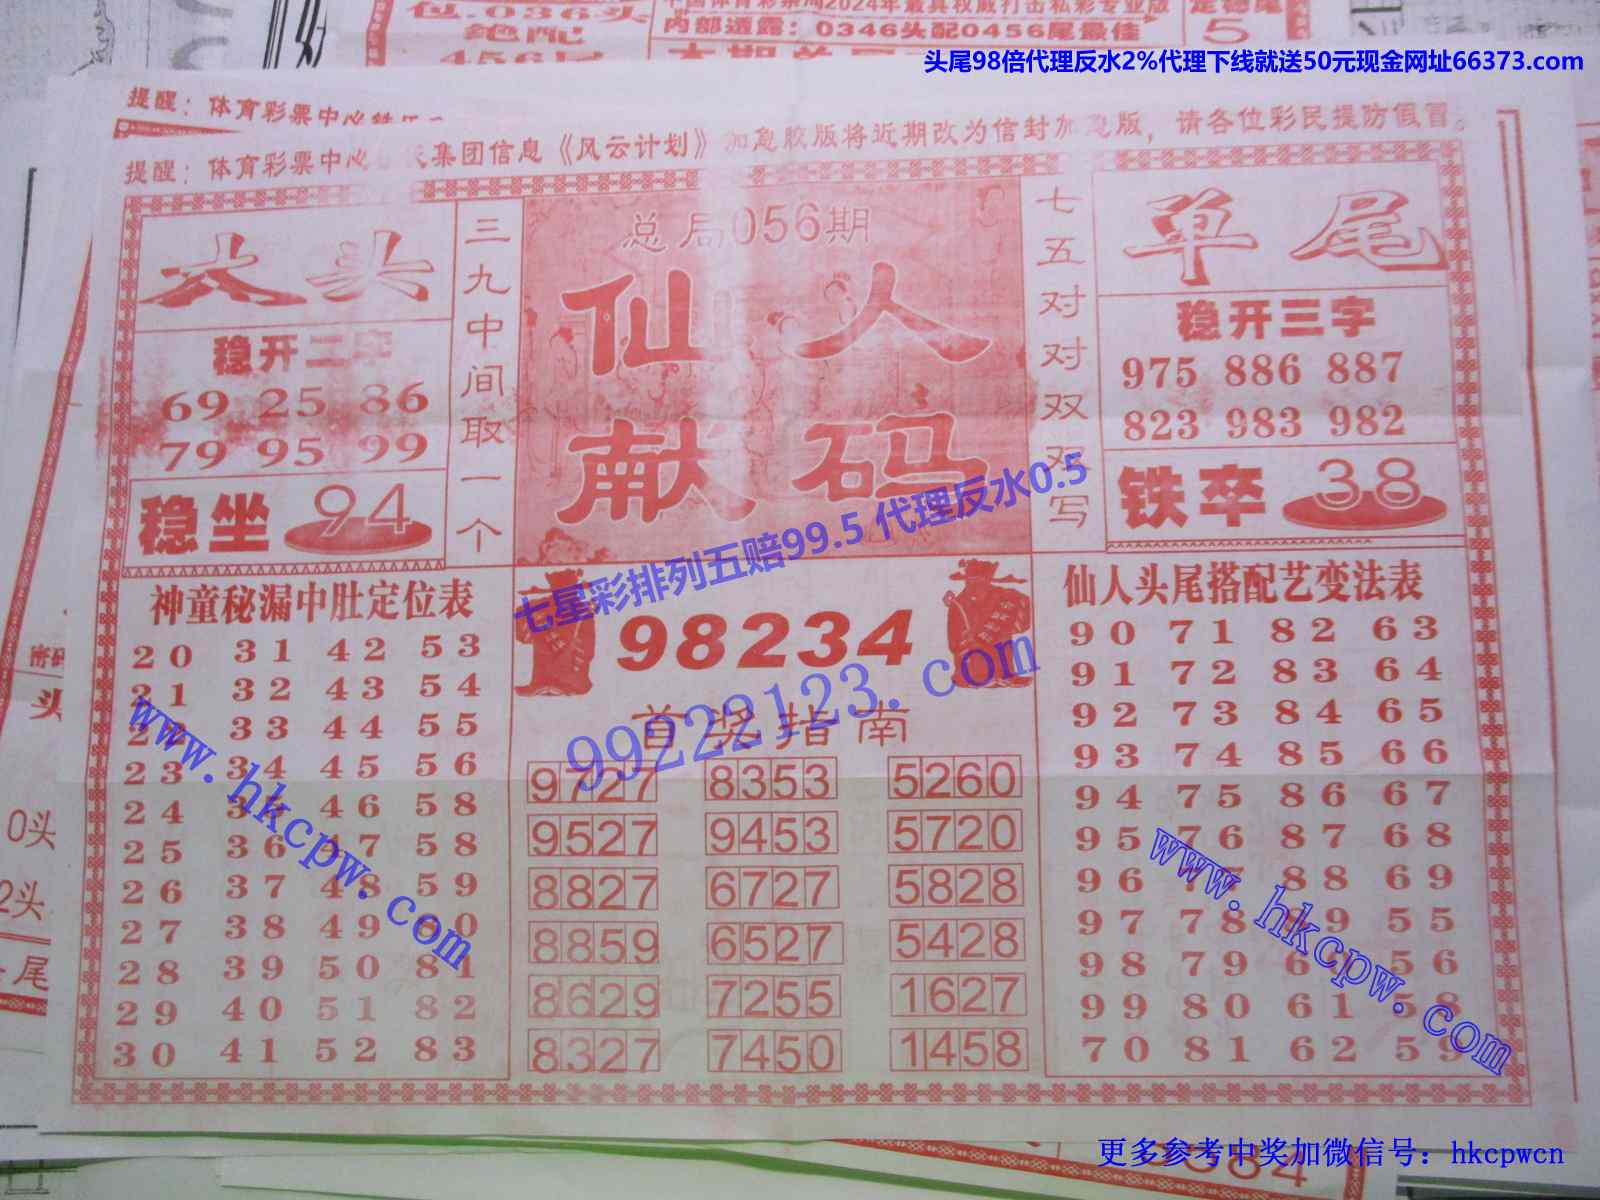 包.036头
绝配
中国体育彩票局2024年最具权威打击私彩专业版
内部透露：0346头配0456尾最佳
5
头尾98倍代理反水2%代理下线就送50元现金网址66373.com
提醒：体育彩票中心
提醒：体育彩票中心 集团信息《风云计划》加急胶版将近期改为信封加急版，请各位彩民提防假冒。
大头
稳开二字
69 25 86
79 95 99
稳坐 94
三九中间取一个
总局056期
仙人
献码
七五对对双双写
单尾
稳开三字
975 886 887
823 983 982
铁卒 38
七星彩排列五赔99.5 代理反水0.5
神童秘漏中肚定位表
20 31 42 53
21 32 43 54
22 33 44 55
23 34 45 56
24 35 46 58
25 36 47 58
26 37 48 59
27 38 49 80
28 39 50 81
29 40 51 82
30 41 52 83
98234
99222123.com
首奖指南
9727 8353 5260
9527 9453 5720
8827 6727 5828
8859 6527 5428
8629 7255 1627
8327 7450 1458
仙人头尾搭配艺变法表
90 71 82 63
91 72 83 64
92 73 84 65
93 74 85 66
94 75 86 67
95 76 87 68
96 77 88 69
97 78 89 55
98 79 60 56
99 80 61 58
70 81 62 59
www.hkcpw.com
www.hkcpw.com
头
0头
2头
尾
更多参考中奖加微信号：hkcpwcn